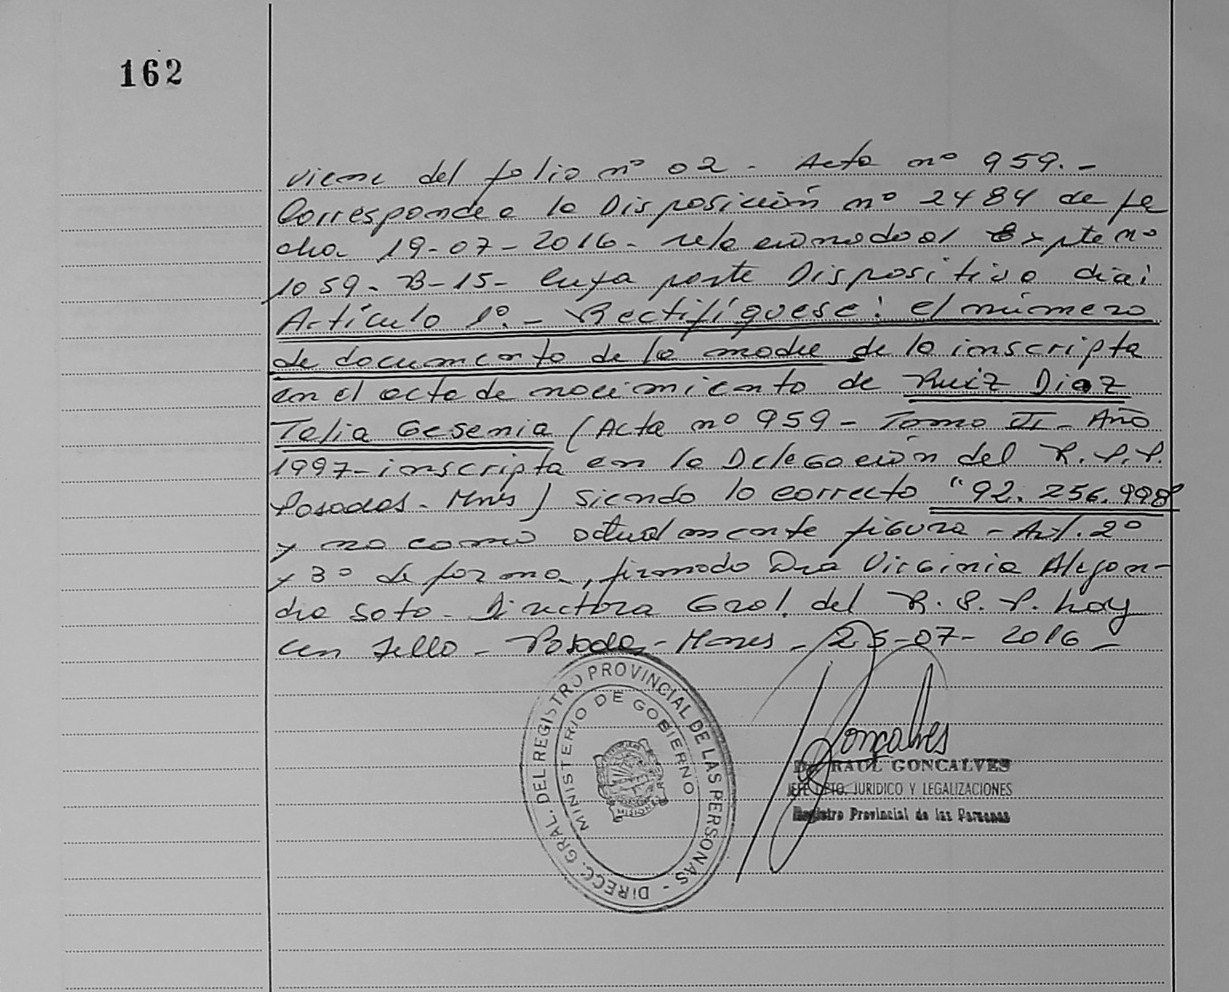 162
viene del folio nº 02 - Acta nº 959.-
Corresponde a la Disposición nº 2484 de fe
cha 19-07-2016- relacionado al Expte nº
1059-B-15- Cuya parte Dispositiva dice:
Artículo 1º.- Rectifíquese: el número
de documento de la madre de la inscripta
en el acta de nacimiento de Ruiz Diaz
Telia Gesenia (Acta nº 959 - Tomo II - Año
1997- inscripta en la Delegación del R.P.P.
Posadas - Mnes) siendo lo correcto "92.256.998"
y no como actualmente figura - Art. 2º
y 3º de forma, firmado Dra Virginia Alejan-
dra Soto - Directora Gral. del R.P.P. hay
un sello - Posadas - Mnes - 25-07-2016 -
DIRECC. GRAL. DEL REGISTRO PROVINCIAL DE LAS PERSONAS -
MINISTERIO DE GOBIERNO
MISIONES
Gonçalves
Dr. RAUL GONCALVES
JEFE DPTO. JURIDICO Y LEGALIZACIONES
Registro Provincial de las Personas